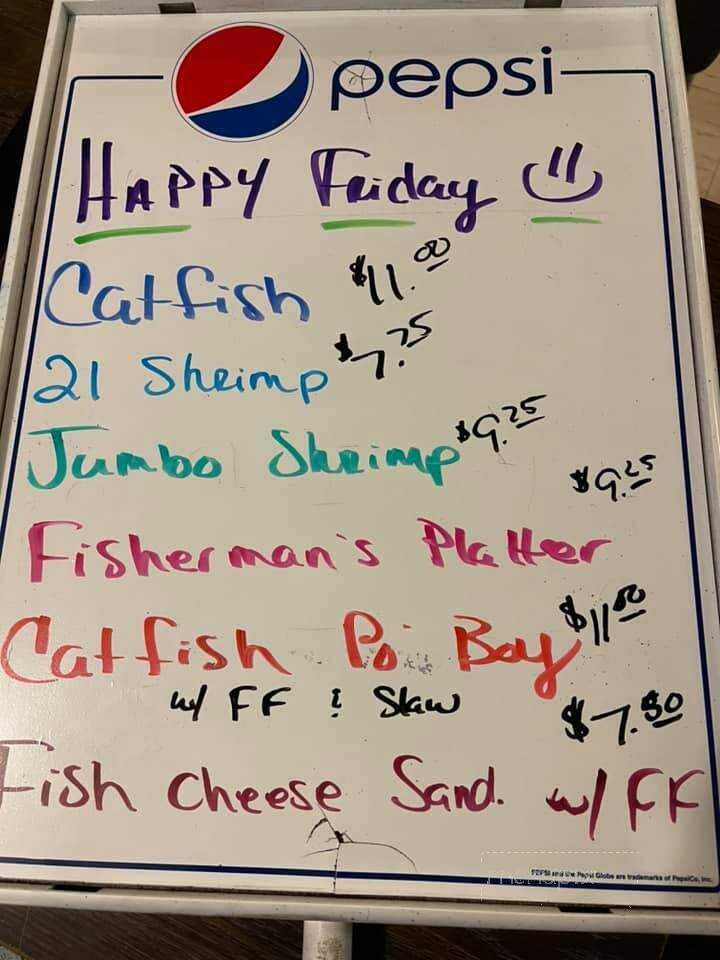 pepsi
HAPPY Friday
Catfish $11.00
21 Shrimp $7.75
Jumbo Shrimp $9.25
$9.25
Fisherman's Platter
Catfish Po Boy $11.00
w/ FF & Slaw $7.50
Fish Cheese Sand. w/ FF
PEPSI and the Pepsi Globe are trademarks of PepsiCo, Inc.